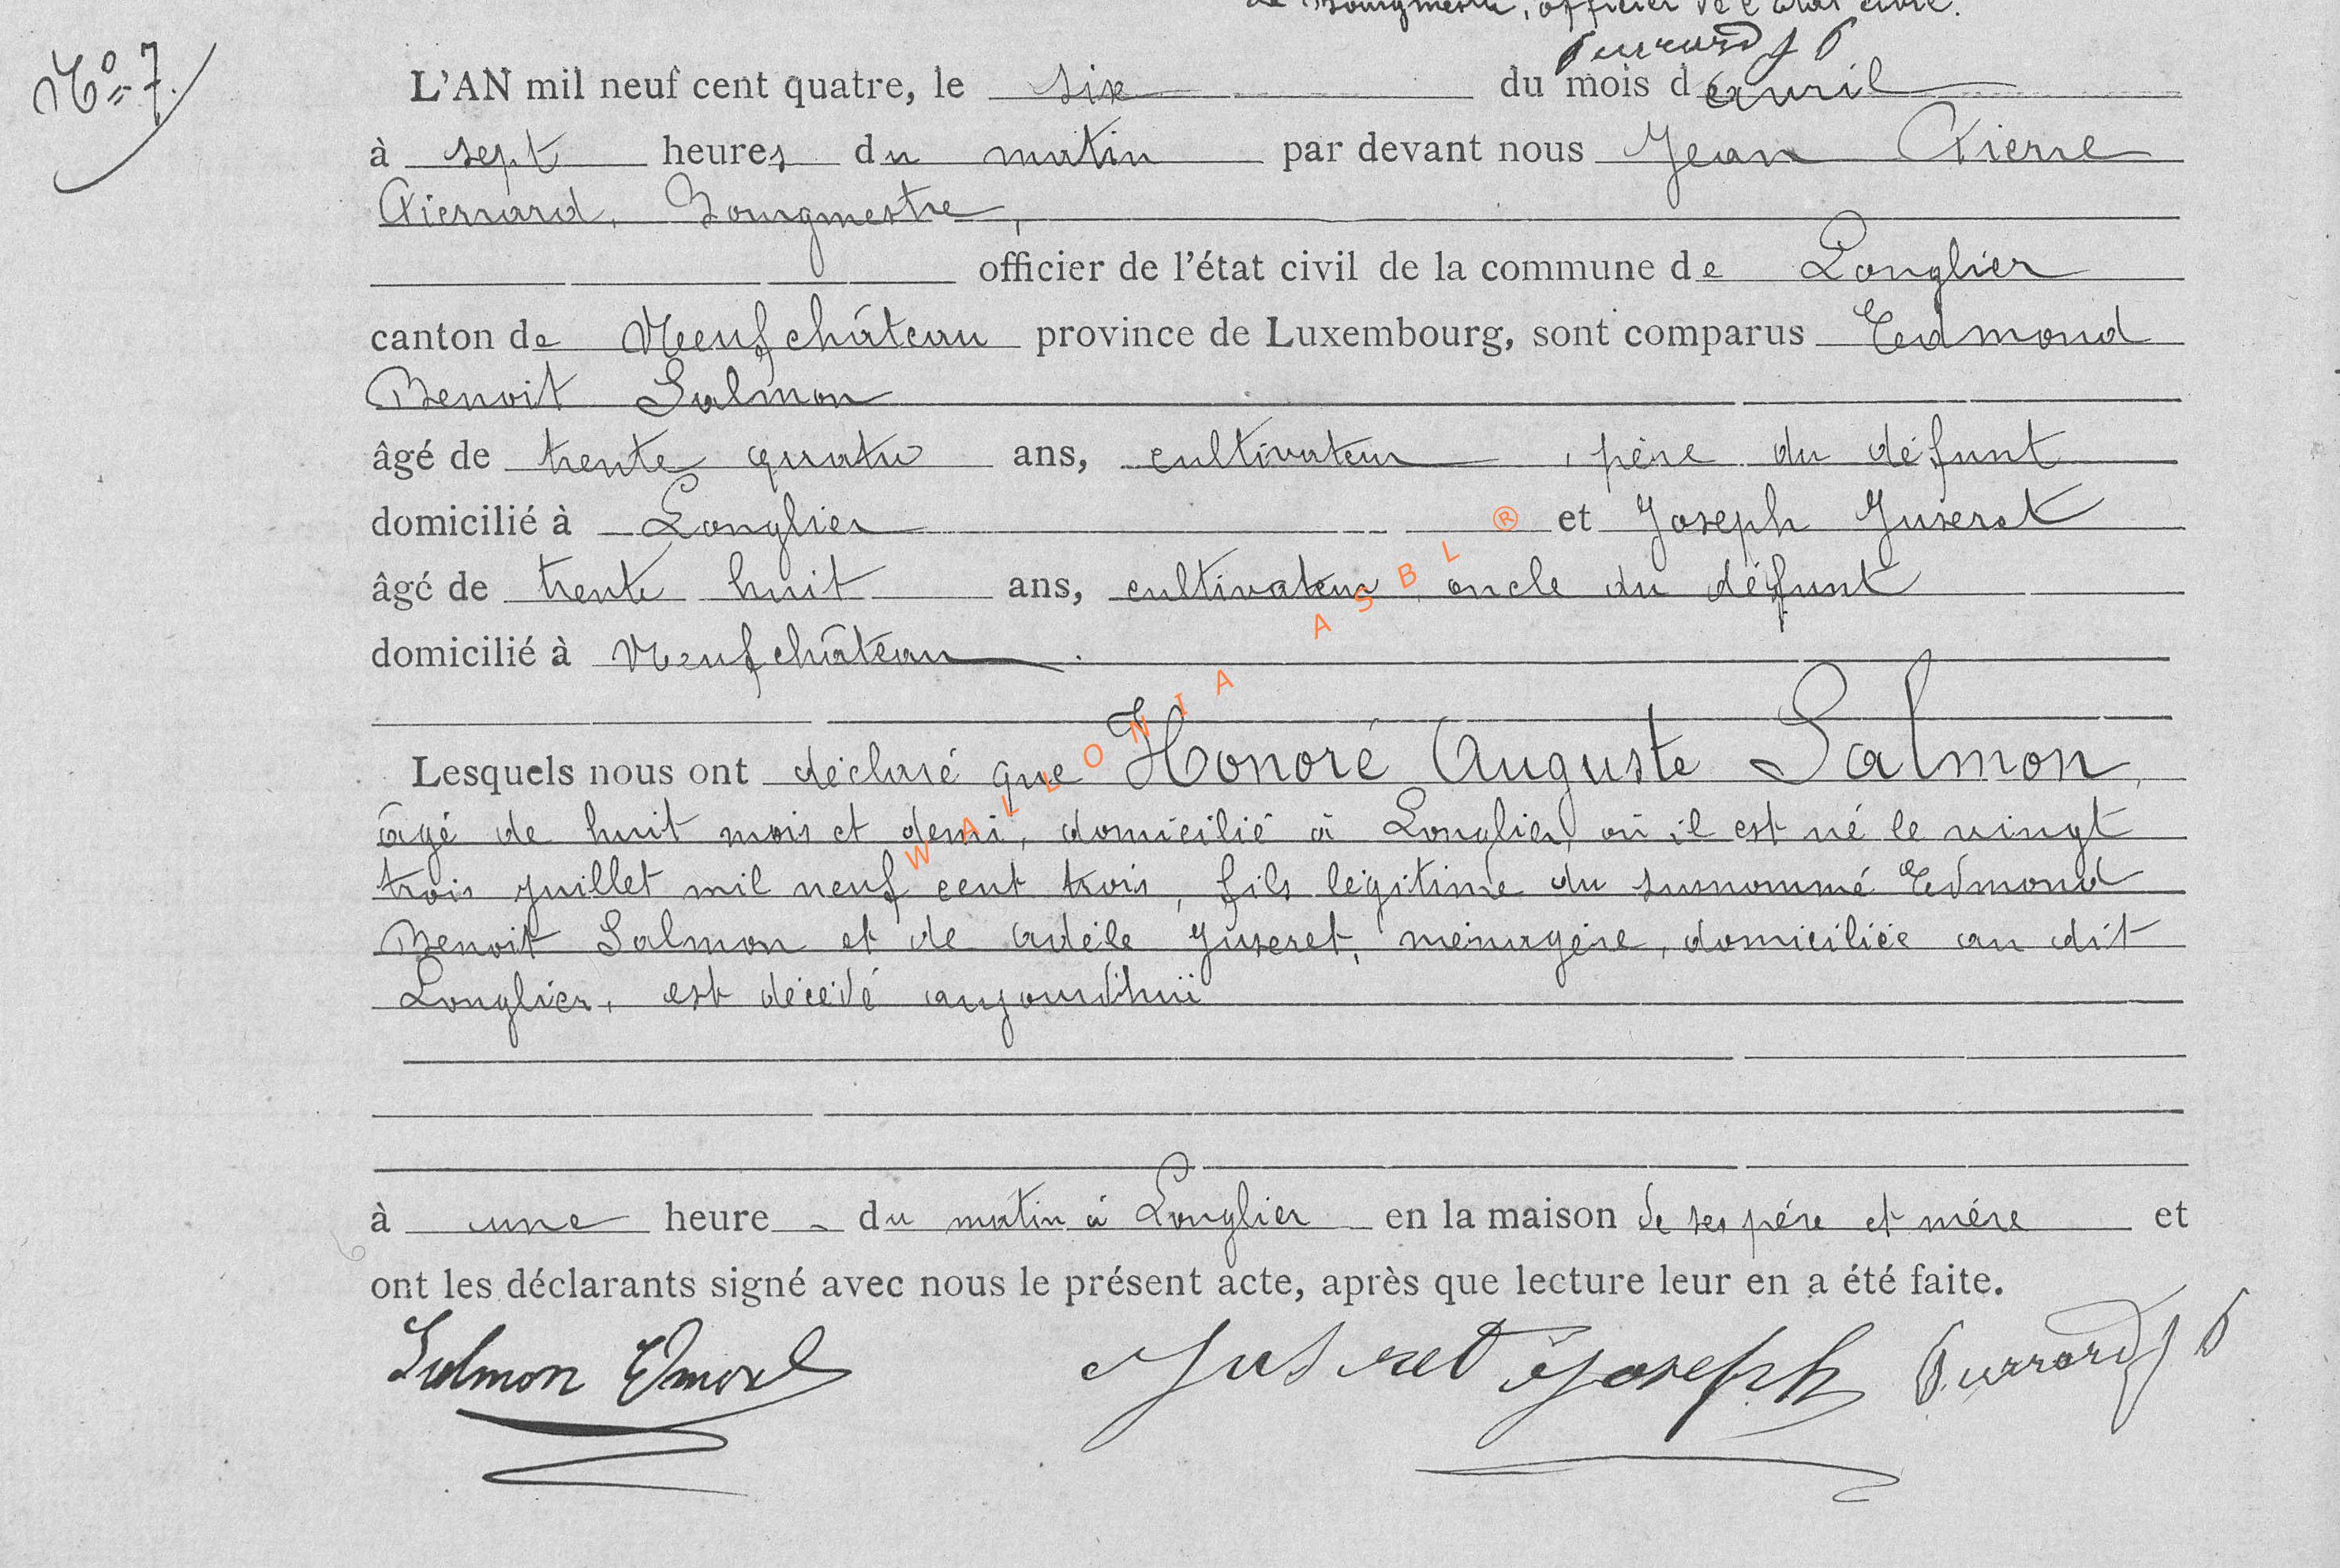 Le Bourgmestre, officier de l'état civil.
Pierrard J P
N° 7.
L'AN mil neuf cent quatre, le six du mois d'avril
à sept heures du matin par devant nous Jean Pierre
Pierrard, Bourgmestre,
officier de l'état civil de la commune de Longlier
canton de Neufchâteau province de Luxembourg, sont comparus Edmond
Benoit Salmon
âgé de trente quatre ans, cultivateur, père du défunt
domicilié à Longlier et Joseph Juseret
âgé de trente huit ans, cultivateur oncle du défunt
domicilié à Neufchâteau.
Lesquels nous ont déclaré que Honoré Auguste Salmon,
âgé de huit mois et demi, domicilié à Longlier où il est né le vingt
trois juillet mil neuf cent trois, fils légitime du susnommé Edmond
Benoit Salmon et de Adèle Juseret, ménagère, domiciliée au dit
Longlier, est décédé aujourd'hui
à une heure du matin à Longlier en la maison de ses père et mère et
ont les déclarants signé avec nous le présent acte, après que lecture leur en a été faite.
Salmon Edmond Juseret Joseph Pierrard J P
WALLONIA ASBL ®